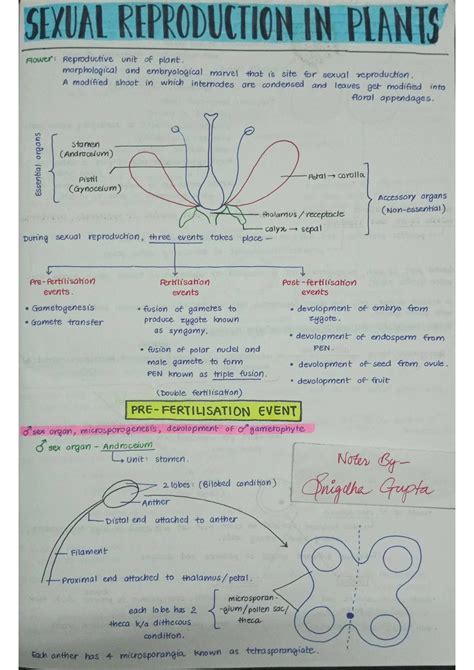 SEXUAL REPRODUCTION IN PLANTS
Flower: Reproductive unit of plant.
morphological and embryological marvel that is site for sexual reproduction.
A modified shoot in which internodes are condensed and leaves get modified into
floral appendages.
Essential organs
Stamen
(Androecium)
Pistil
(Gynoecium)
Petal → corolla
Accessory organs
(Non-essential)
thalamus / receptacle
calyx → sepal
During sexual reproduction, three events takes place –
Pre-Fertilisation
events.
• Gametogenesis
• Gamete transfer
Fertilisation
events
• fusion of gametes to
produce zygote known
as syngamy.
• fusion of polar nuclei and
male gamete to form
PEN known as triple fusion.
(Double fertilisation)
Post-fertilisation
events
• devolopment of embryo from
zygote.
• devolopment of endosperm from
PEN.
• devolopment of seed from ovule.
• devolopment of fruit
PRE-FERTILISATION EVENT
♂ sex organ, microsporogenesis, devolopment of ♂ gametophyte
♂ sex organ - Androecium
↳ Unit: stamen.
Notes By–
Snigdha Gupta
2 lobes: (Bilobed condition)
Anther
Distal end attached to anther
Filament
Proximal end attached to thalamus/petal.
each lobe has 2
theca k/a dithecous
condition.
microsporan-
-gium/pollen sac/
theca
Each anther has 4 microsporangia known as tetrasporangiate.